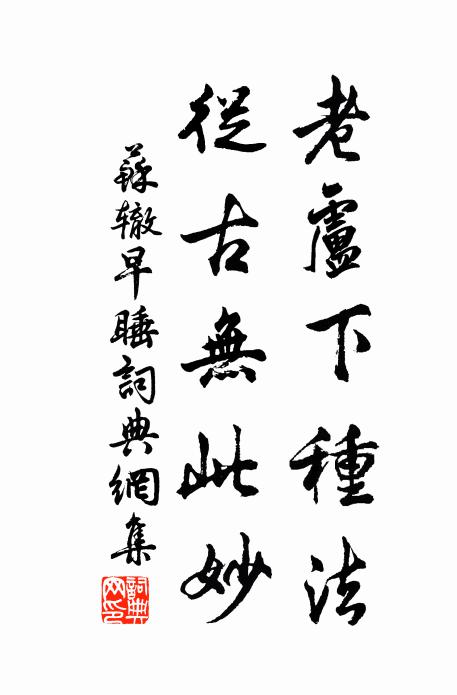 老盧下種法
從古無此妙
蘇轍早睡詞典網集
詞典網印